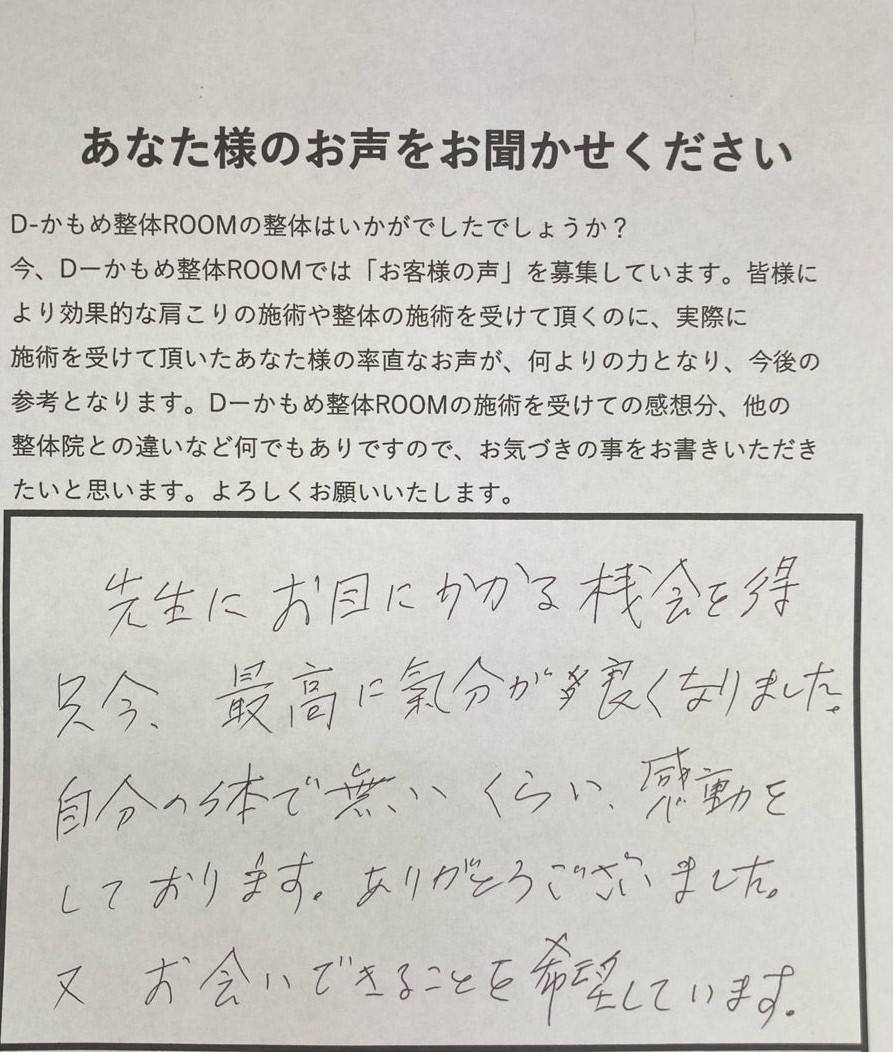 あなた様のお声をお聞かせください
D-かもめ整体ROOMの整体はいかがでしたでしょうか？
今、Dーかもめ整体ROOMでは「お客様の声」を募集しています。皆様に
より効果的な肩こりの施術や整体の施術を受けて頂くのに、実際に
施術を受けて頂いたあなた様の率直なお声が、何よりの力となり、今後の
参考となります。Dーかもめ整体ROOMの施術を受けての感想分、他の
整体院との違いなど何でもありですので、お気づきの事をお書きいただき
たいと思います。よろしくお願いいたします。
先生にお目にかかる機会を得
只今、最高に氣分が良くなりました。
自分の体で無いくらい、感動を
しております。ありがとうございました。
又 お会いできることを希望しています。